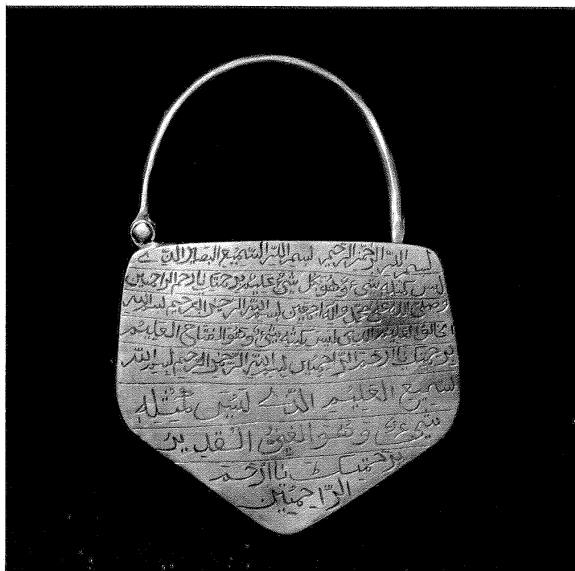 بسم الله الرحمن الرحيم بسم الله السميع البصير الذي
ليس كمثله شيء وهو بكل شيء عليم برحمتك يا ارحم الراحمين
وصلى الله على محمد واله اجمعين بسم الله الرحمن الرحيم بسم الله
الخالق العليم الذي ليس كمثله شيء وهو الفتاح العليم
برحمتك يا ارحم الراحمين بسم الله الرحمن الرحيم بسم الله
السميع العليم الذي ليس كمثله
شيء وهو الغني القدير
برحمتك يا ارحم
الراحمين